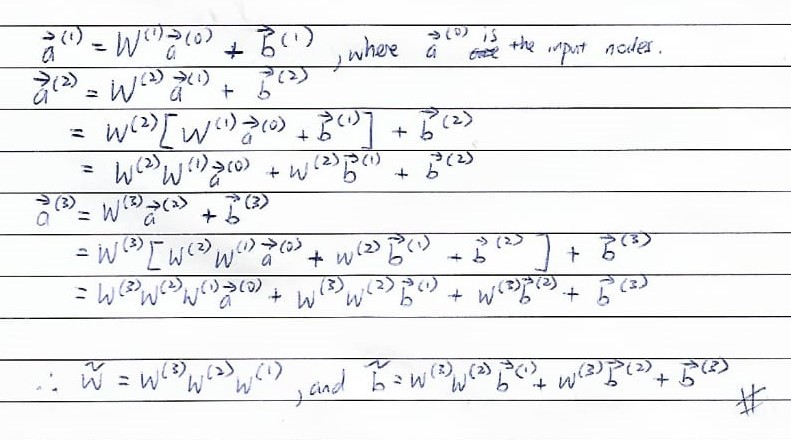 a⃗⁽¹⁾ = W⁽¹⁾a⃗⁽⁰⁾ + b⃗⁽¹⁾ , where a⃗⁽⁰⁾ is the input nodes.
a⃗⁽²⁾ = W⁽²⁾a⃗⁽¹⁾ + b⃗⁽²⁾
= W⁽²⁾[W⁽¹⁾a⃗⁽⁰⁾ + b⃗⁽¹⁾] + b⃗⁽²⁾
= W⁽²⁾W⁽¹⁾a⃗⁽⁰⁾ + W⁽²⁾b⃗⁽¹⁾ + b⃗⁽²⁾
a⃗⁽³⁾ = W⁽³⁾a⃗⁽²⁾ + b⃗⁽³⁾
= W⁽³⁾[W⁽²⁾W⁽¹⁾a⃗⁽⁰⁾ + W⁽²⁾b⃗⁽¹⁾ + b⃗⁽²⁾] + b⃗⁽³⁾
= W⁽³⁾W⁽²⁾W⁽¹⁾a⃗⁽⁰⁾ + W⁽³⁾W⁽²⁾b⃗⁽¹⁾ + W⁽³⁾b⃗⁽²⁾ + b⃗⁽³⁾
∴ W̃ = W⁽³⁾W⁽²⁾W⁽¹⁾ , and b̃ = W⁽³⁾W⁽²⁾b⃗⁽¹⁾ + W⁽³⁾b⃗⁽²⁾ + b⃗⁽³⁾ #